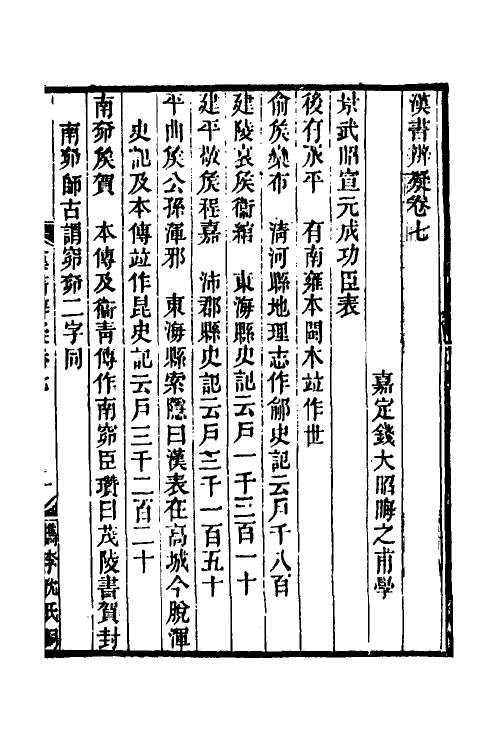 漢書辨疑卷七
嘉定錢大昭晦之甫學
景武昭宣元成功臣表
後有承平　有南雍本閩本竝作世
俞矦欒布　清河縣地理志作鄃史記云戶千八百
建陵哀矦衞綰　東海縣史記云戶一千三百一十
建平敬矦程嘉　沛郡縣史記云戶三千一百五十
平曲矦公孫渾邪　東海縣索隱曰漢表在高城今脫渾
史記及本傳竝作昆史記云戶三千二百二十
南奅矦賀　本傳及衞青傳作南窌臣瓚曰茂陵書賀封
南奅師古謂窌奅二字同
卷七
李沈氏